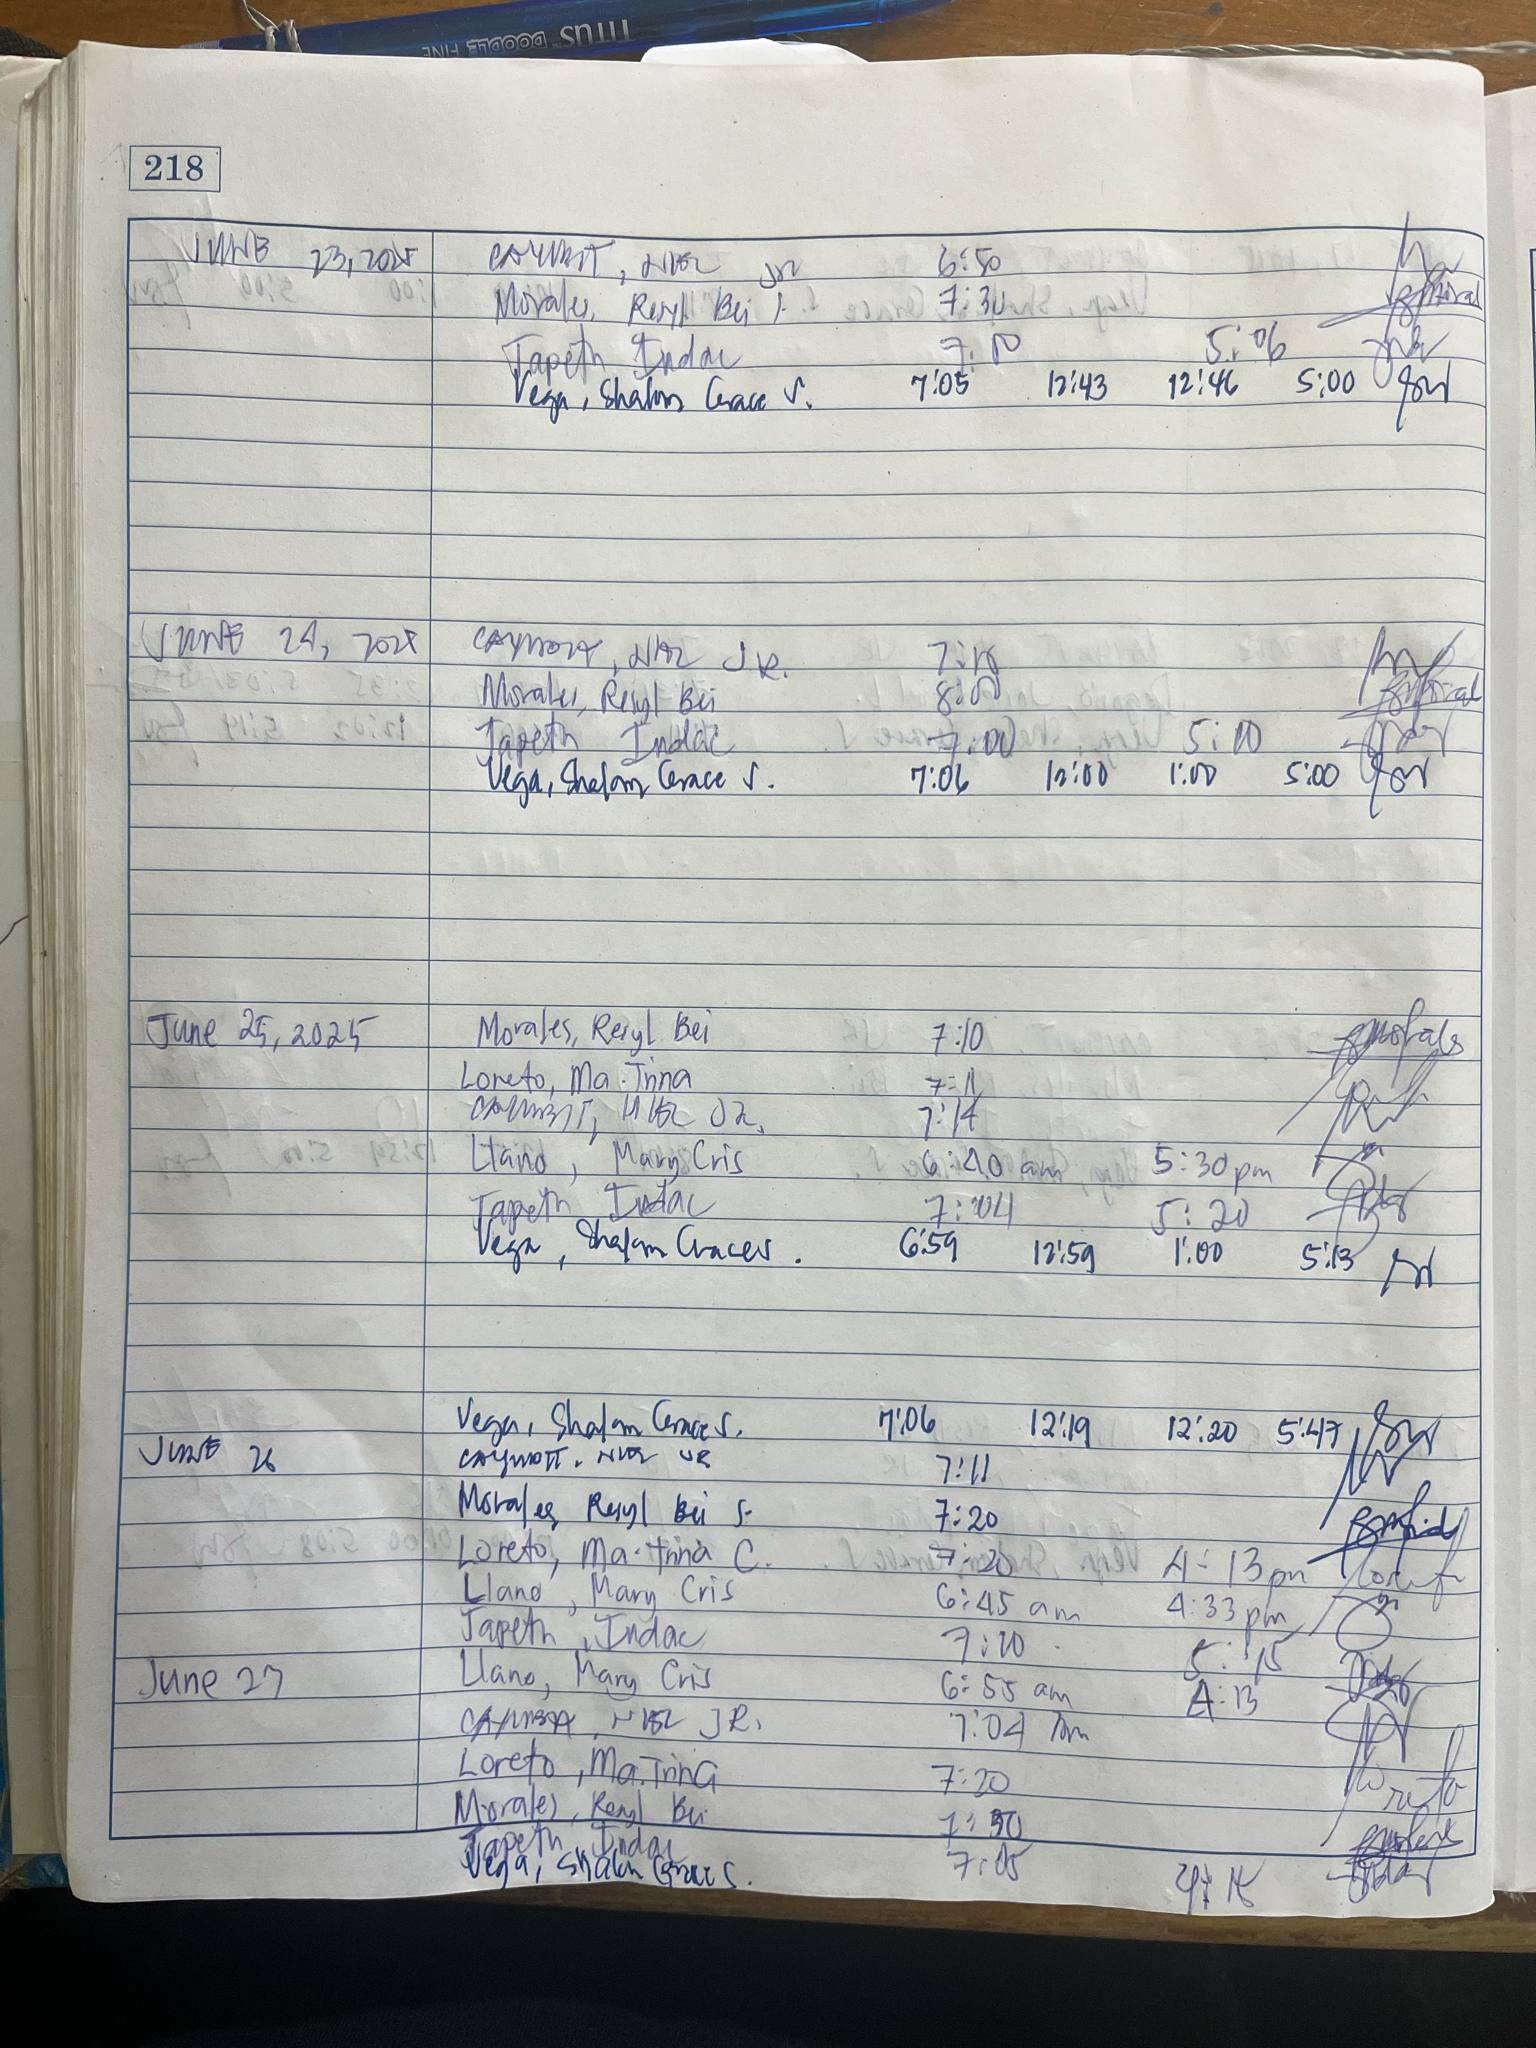 TITUS DOODLE FINE
218
JUNE 23, 2025 JR 6:50
Morales, Reryl Bei S. 7:30
Japeth Indac 7:10 5:06
Vega, Shalom Grace S. 7:05 12:43 12:46 5:00
JUNE 24, 2025 JR. 7:18
Morales, Reryl Bei 8:00
Japeth Indac 7:00 5:10
Vega, Shalom Grace S. 7:06 12:00 1:00 5:00
June 25, 2025 Morales, Reryl Bei 7:10
Loreto, Ma. Irina 7:11
JR. 7:14
Llano, Mary Cris 6:40 am 5:30 pm
Japeth Indac 7:04 5:20
Vega, Shalom Grace S. 6:59 12:59 1:00 5:13
Vega, Shalom Grace S. 7:06 12:19 12:20 5:47
JUNE 26 JR 7:11
Morales, Reryl Bei S. 7:20
Loreto, Ma. Irina C. 7:20 4:13 pm Loreto
Llano, Mary Cris 6:45 am 4:33 pm
Japeth, Indac 7:10 5:15
June 27 Llano, Mary Cris 6:55 am 4:13
JR. 7:04 am
Loreto, Ma. Irina 7:20 Loreto
Morales, Reryl Bei 7:30
Japeth Indac 7:05
Vega, Shalom Grace S.